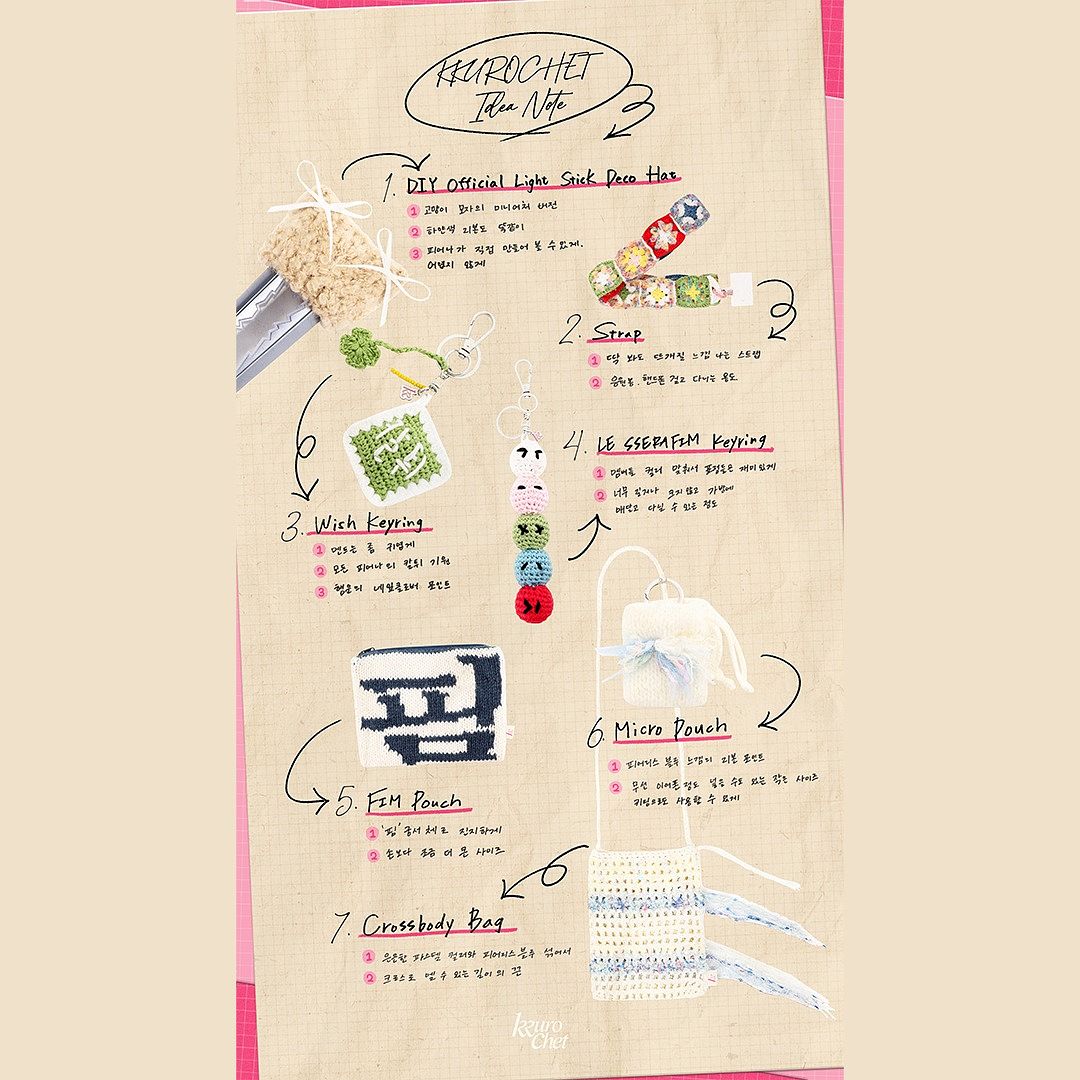 KKUROCHET
Idea Note
1. DIY Official Light Stick Deco Hat
1 고양이 모자의 미니어처 버전
2 하얀색 리본도 똑같이
3 피어나가 직접 만들어 볼 수 있게.
어렵지 않게
2. Strap
1 딱 봐도 뜨개질 느낌 나는 스트랩
2 응원봉, 핸드폰 걸고 다니는 용도
3. Wish Keyring
1 멘트는 좀 귀엽게
2 모든 피어나의 칼퇴 기원
3 행운의 네잎클로버 포인트
4. LE SSERAFIM Keyring
1 멤버들 컬러 맞춰서 표정들은 재미있게
2 너무 길거나 크지 않고 가방에
매달고 다닐 수 있는 정도
5. FIM Pouch
1 '핌' 궁서체로 진지하게
2 손보다 조금 더 큰 사이즈
핌
6. Micro Pouch
1 피어리스 블루 느낌의 리본 포인트
2 무선 이어폰 정도 넣을 수도 있는 작은 사이즈
키링으로도 사용할 수 있게
7. Crossbody Bag
1 은은한 파스텔 컬러와 피어리스 블루 섞어서
2 크로스로 멜 수 있는 길이의 끈
kkuro
chet